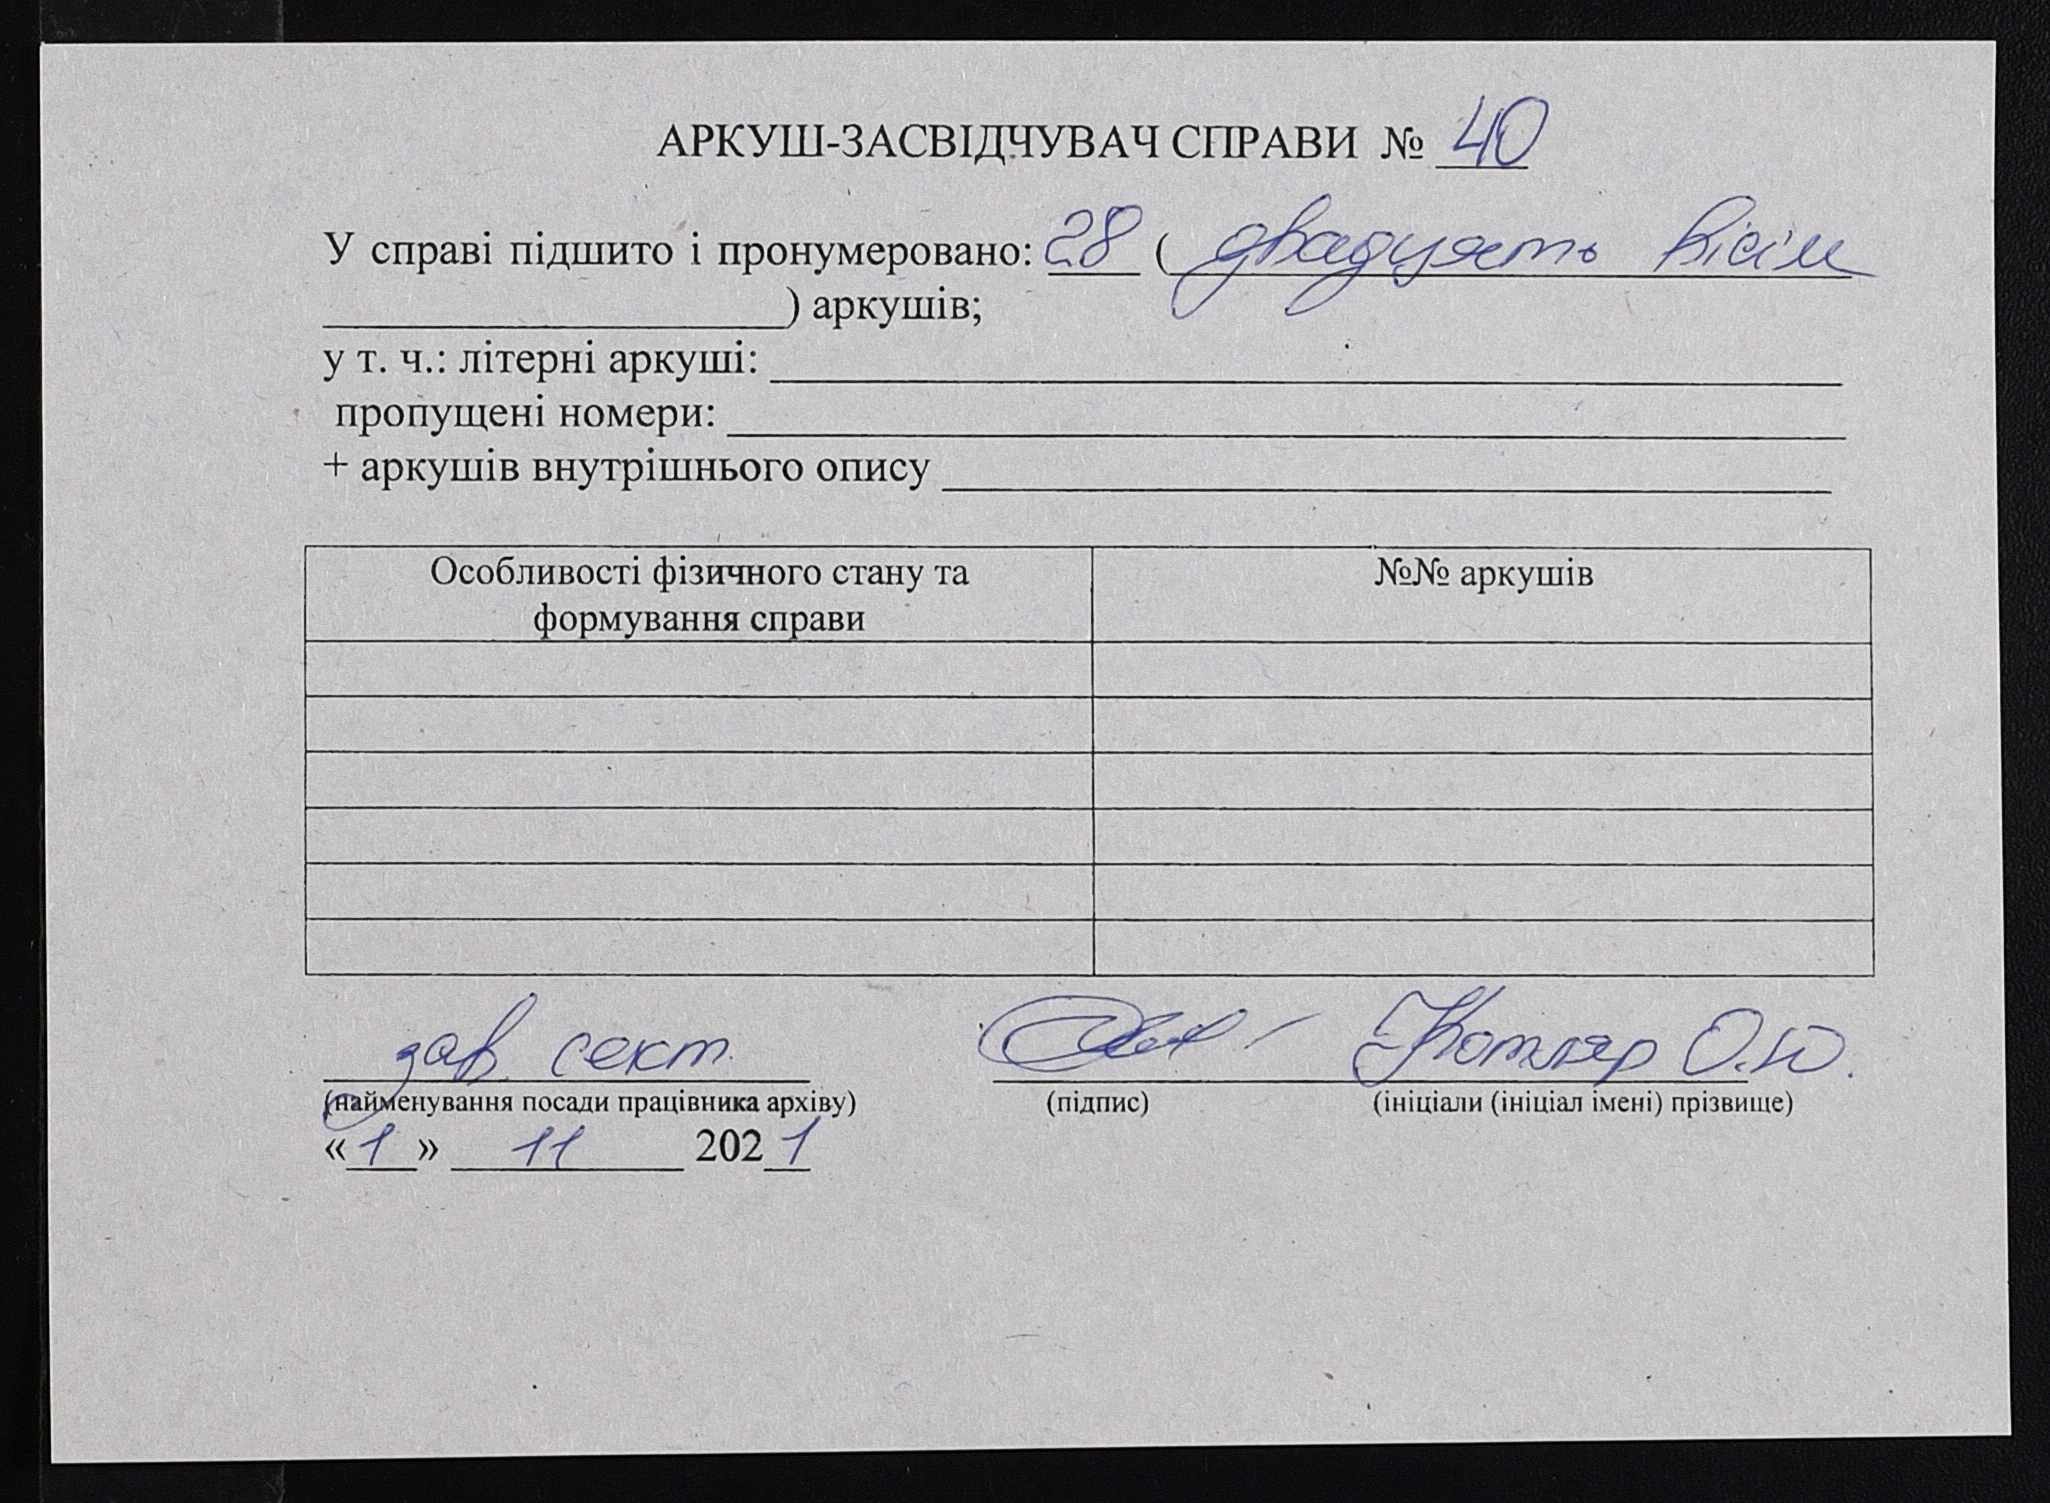 АРКУШ-ЗАСВІДЧУВАЧ СПРАВИ № 40
У справі підшито і пронумеровано: 28 ( двадцять вісім
) аркушів;
у т. ч.: літерні аркуші:
пропущені номери:
+ аркушів внутрішнього опису
Особливості фізичного стану та формування справи
№№ аркушів
зав сект. Котляр О.Ю.
(найменування посади працівника архіву) (підпис) (ініціали (ініціал імені) прізвище)
«1» 11 2021